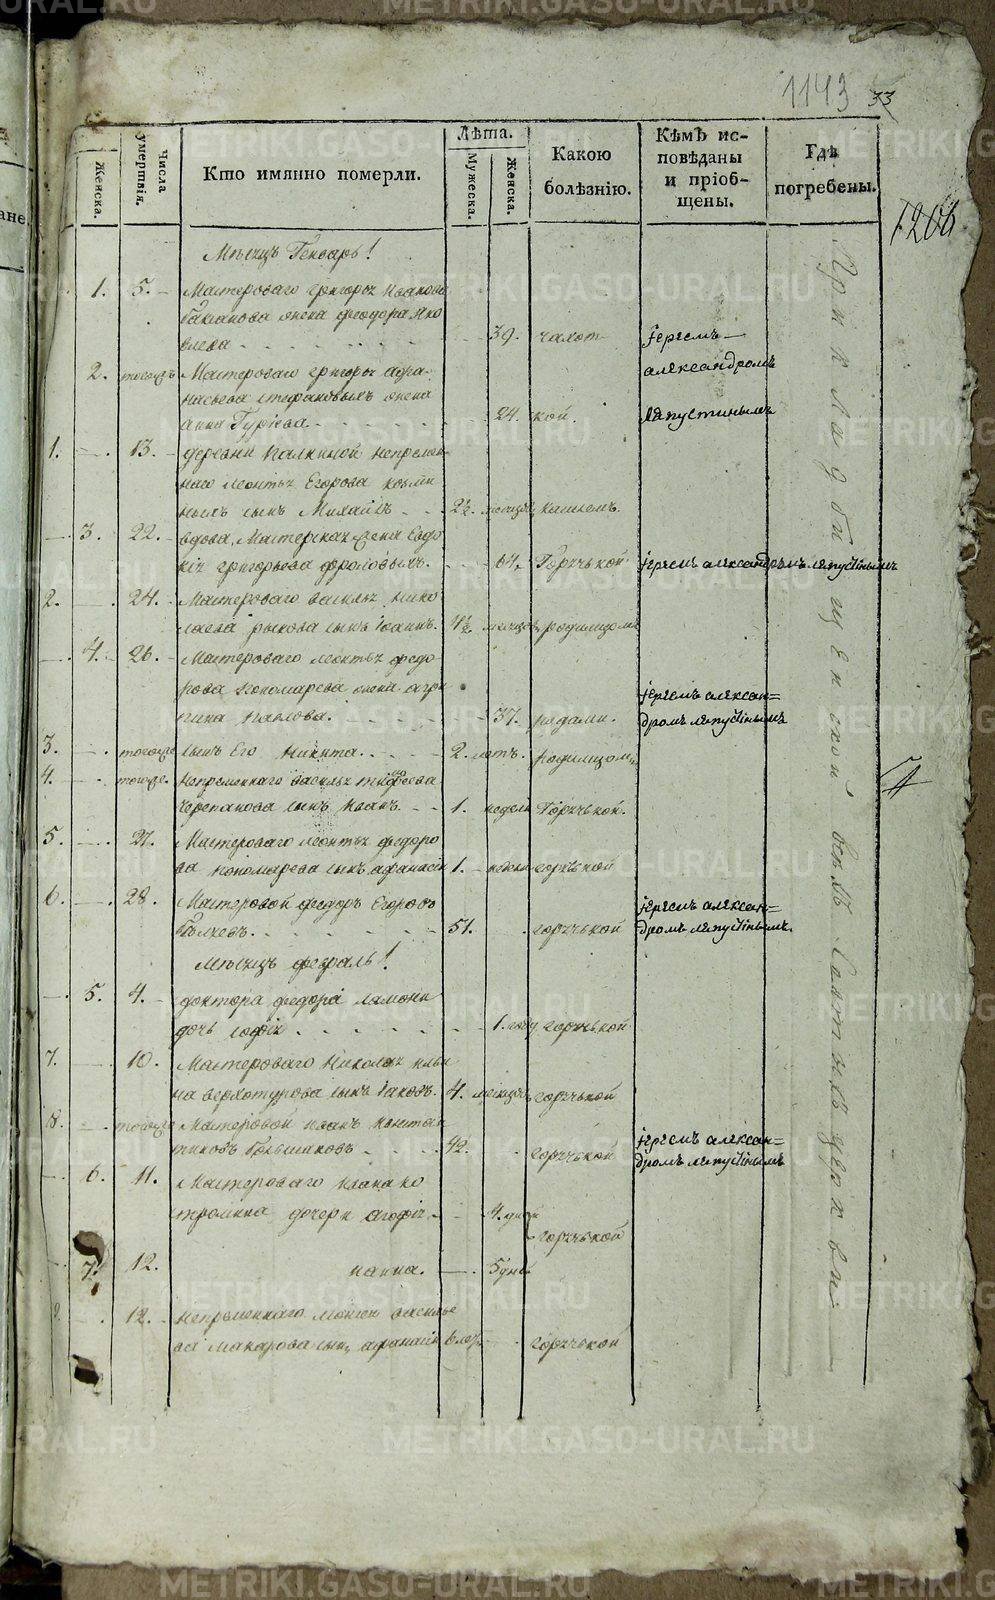 1143 33
1206
Женска.
Числа умертвія.
Кто имянно померли.
Лѣта.
Мужеска.
Женска.
Какою болѣзнію.
Кѣмъ ис-
повѣданы
и пріоб-
щены.
Гдѣ
погребены.
Мѣсяцъ Генварь!
1. 5. Мастероваго григорья Иванова
жена феодора Яко
влева 39. чахот- Іереемъ
2. тогожъ Мастероваго григорья афа-
насьева стефановыхъ жена александромъ
анна Гурьева 24. кой. Ляпустинымъ
1. 13. деревни Палкиной непремен-
наго леонтья Егорова козми
ныхъ сынъ Михаилъ 2½ месяцъ кашлемъ.
3. 22. вдова, Мастерская жена Евдо
кія григорьева фроловыхъ. 64. Горячькой Іереемъ александромъ ляпустинымъ
2. 24. Мастероваго василья нико
лаева рыкова сынъ Іоаннъ. 4½ месяцовъ родимцомъ
4. 26. Мастероваго леонтья федо-
рова пономарева жена агри Іереемъ алексан=
пина павлова. 37. родами. дромъ ляпустинымъ
3. тогожъ сынъ Его Никита 2. летъ. родимцомъ
4. тогоже. непременнаго василья тимофеева
Черепанова сынъ Иванъ 1. недели Горячькой.
5. 27. Мастероваго леонтья федоро
ва пономарева сынъ афанасій 1. недели горячькой
6. 28. Мастеровой федоръ Егоровъ Іереемъ алексан=
51. горячькой дромъ ляпустинымъ.
Мѣсяцъ февраль!
5. 4. доктора федора
дочь софія 1. году горячькой
7. 10. Мастероваго Николая ильи
на верхотурова сынъ Іаковъ. 4. месяцовъ горячькой
8. тогоже Мастеровой иванъ констан
тиновъ Большаковъ 42. горячькой Іереемъ алексан=
дромъ ляпустинымъ
6. 11. Мастероваго ивана ко
тромина дочери агафія 4. дней
горячькой
7. 12. 5 дней
12. непременнаго василье
ва макарова сынъ афанасій горячькой
При Кладбищенской всѣхъ Святыхъ церкви.